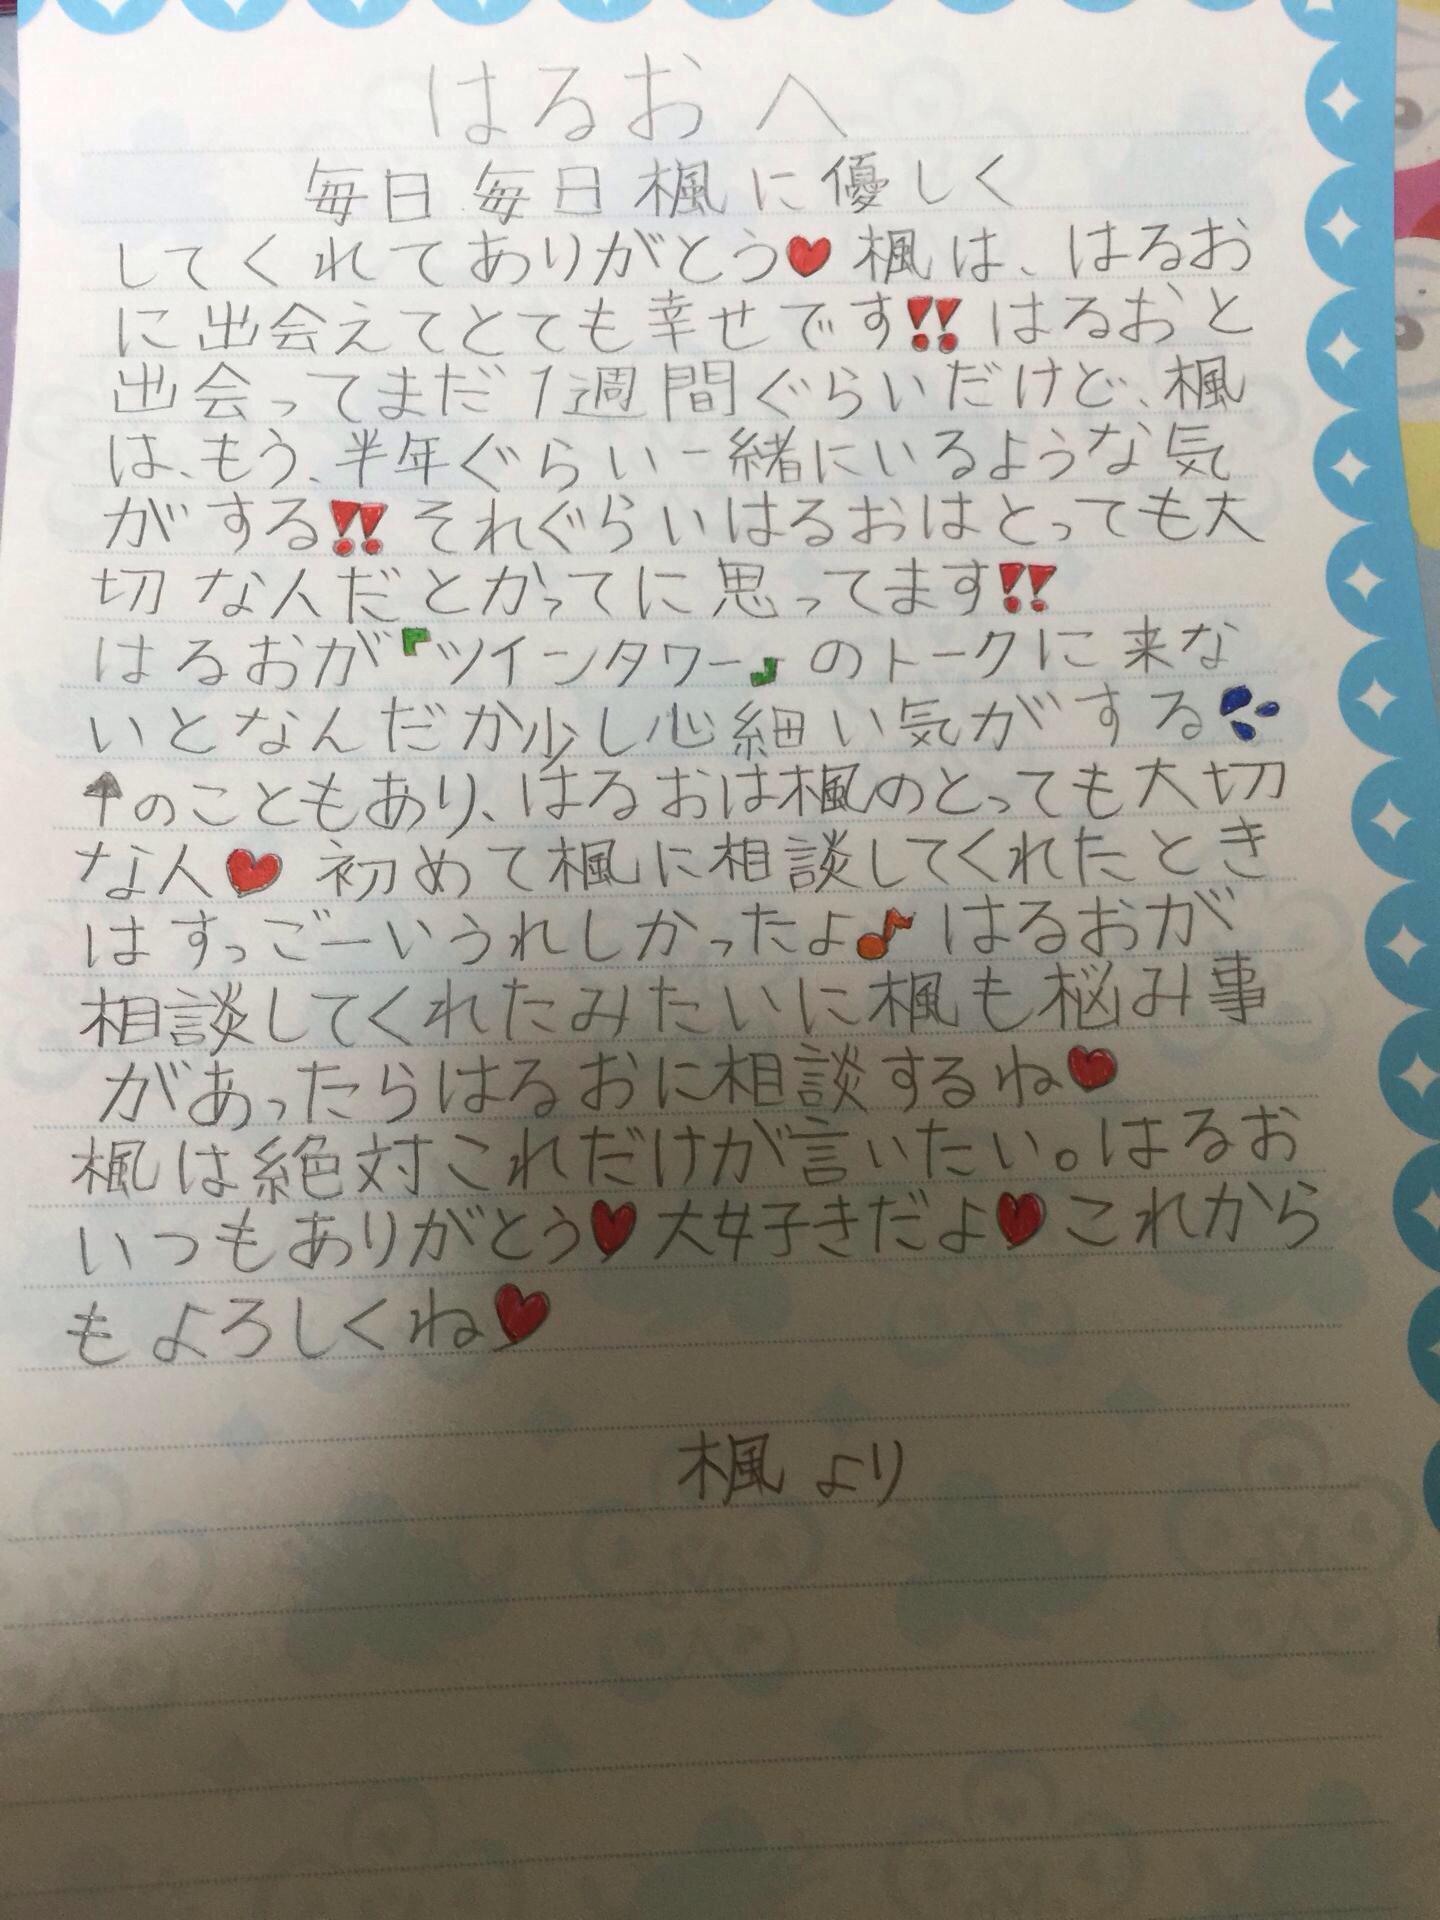 はるおへ
毎日毎日楓に優しく
してくれてありがとう♥楓は、はるお
に出会えてとても幸せです‼はるおと
出会ってまだ1週間ぐらいだけど、楓
は、もう、半年ぐらい一緒にいるような気
がする‼それぐらいはるおはとっても大
切な人だとかってに思ってます‼
はるおが『ツインタワー』のトークに来な
いとなんだか少し心細い気がする💦
↑のこともあり、はるおは楓のとっても大切
な人♥初めて楓に相談してくれたとき
はすっごーいうれしかったよ♪はるおが
相談してくれたみたいに楓も悩み事
があったらはるおに相談するね♥
楓は絶対これだけが言いたい。はるお
いつもありがとう♥大好きだよ♥これから
もよろしくね♥
楓より